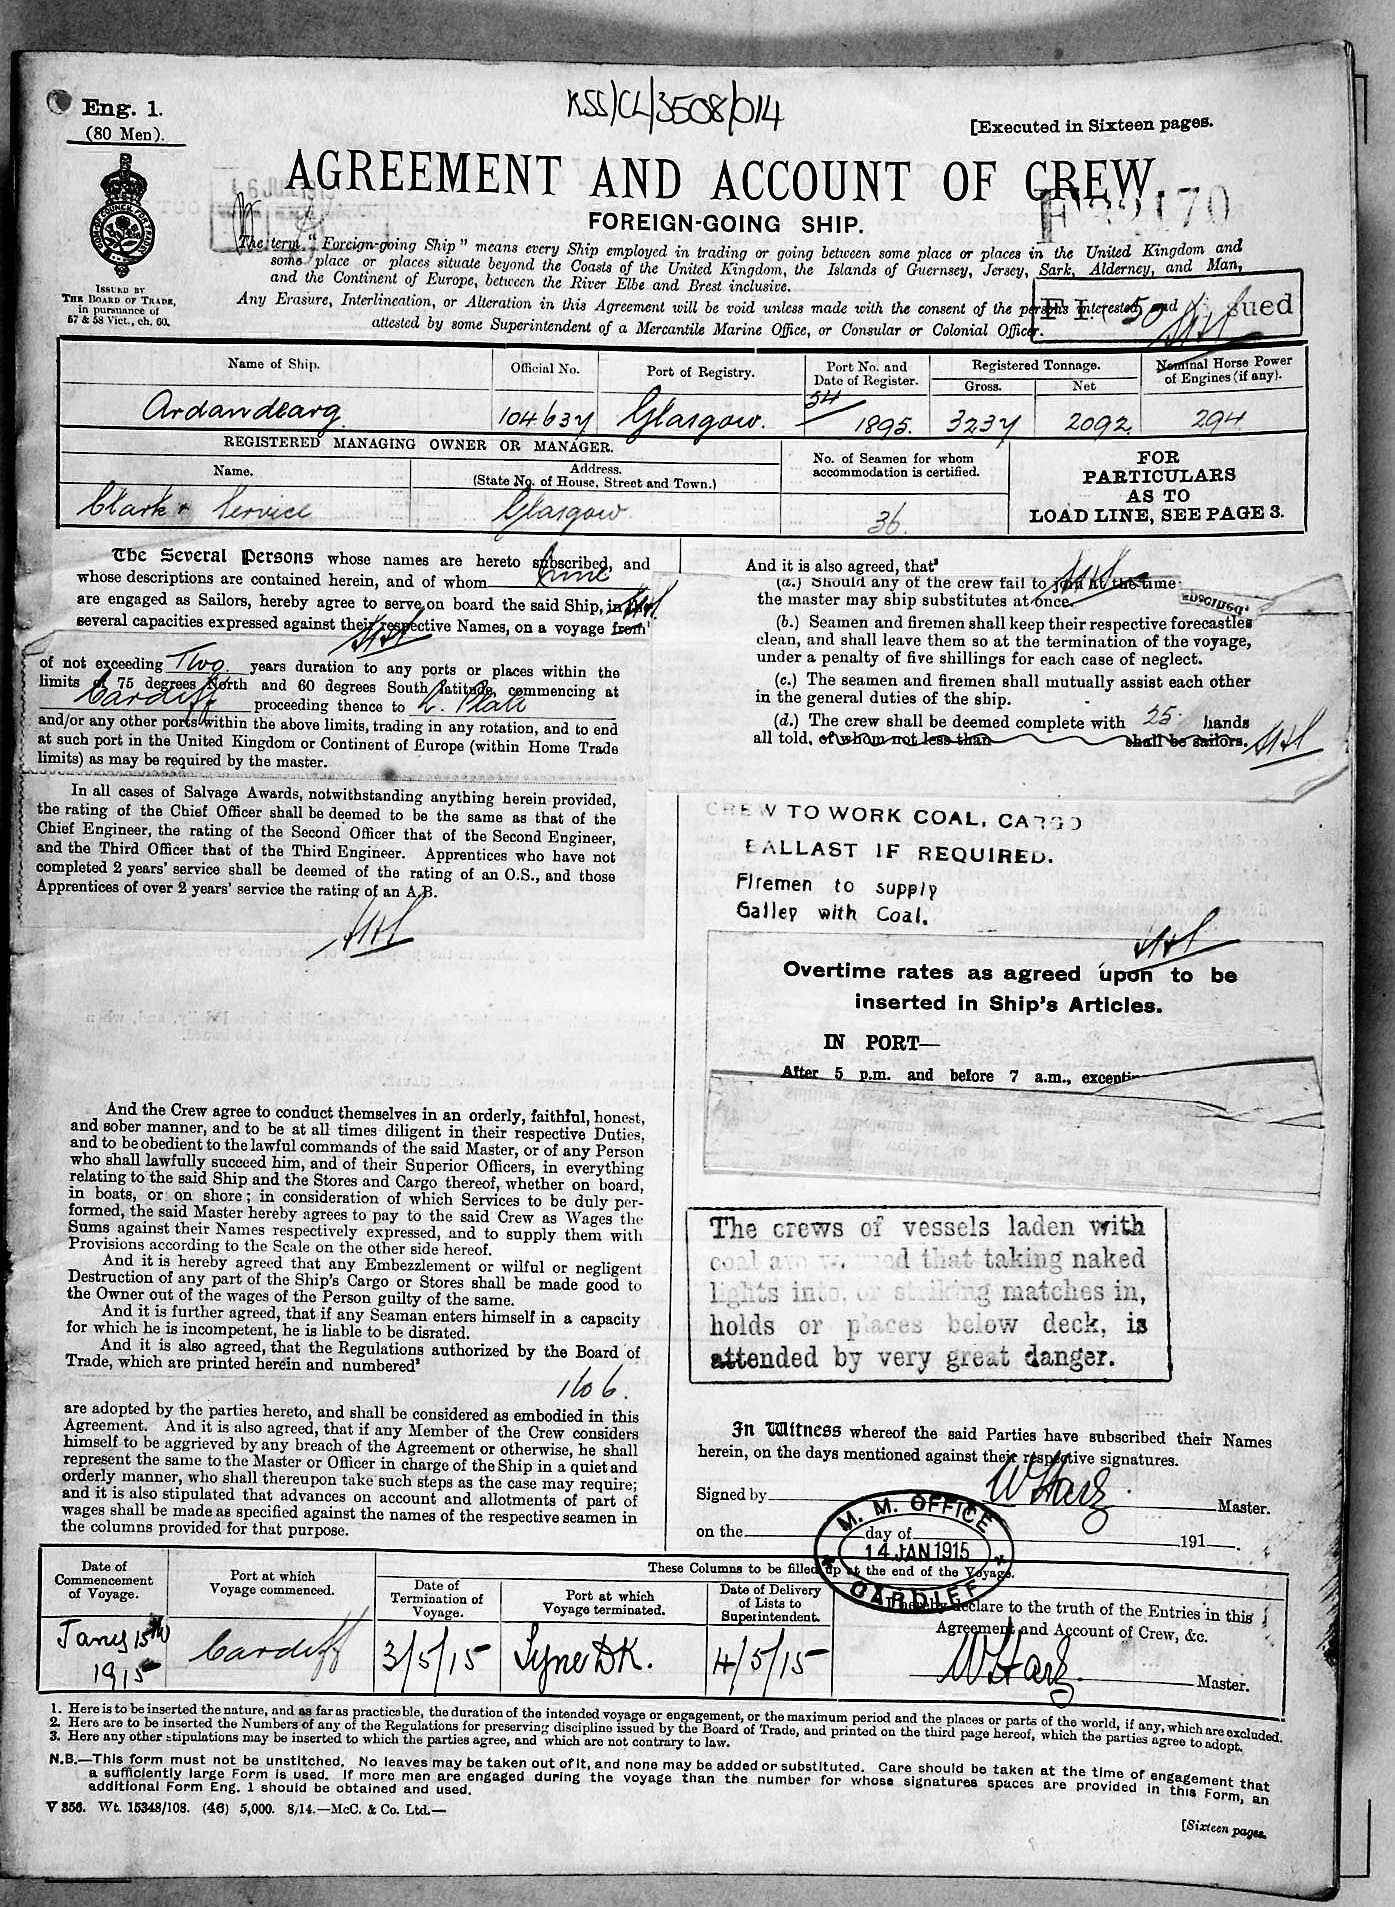 RSS/CL/3508/014
Eng. 1.
(80 Men).
[Executed in Sixteen pages.
AGREEMENT AND ACCOUNT OF CREW
FOREIGN-GOING SHIP.
ISSUED BY
THE BOARD OF TRADE,
in pursuance of
57 & 58 Vict., ch. 60.
The term "Foreign-going Ship" means every Ship employed in trading or going between some place or places in the United Kingdom and
some place or places situate beyond the Coasts of the United Kingdom, the Islands of Guernsey, Jersey, Sark, Alderney, and Man,
and the Continent of Europe, between the River Elbe and Brest inclusive.
Any Erasure, Interlineation, or Alteration in this Agreement will be void unless made with the consent of the persons interested and
attested by some Superintendent of a Mercantile Marine Office, or Consular or Colonial Officer.
Name of Ship.
Official No.
Port of Registry.
Port No. and
Date of Register.
Registered Tonnage.
Gross.
Net
Nominal Horse Power
of Engines (if any).
Ardandearg
104637
Glasgow.
54
1895.
3237
2092.
294
REGISTERED MANAGING OWNER OR MANAGER.
Name.
Address.
(State No. of House, Street and Town.)
No. of Seamen for whom
accommodation is certified.
FOR
PARTICULARS
AS TO
LOAD LINE, SEE PAGE 3.
Clark & Service
Glasgow
36.
The Several Persons whose names are hereto subscribed, and
whose descriptions are contained herein, and of whom
are engaged as Sailors, hereby agree to serve on board the said Ship, in the
several capacities expressed against their respective Names, on a voyage from¹
of not exceeding Two years duration to any ports or places within the
limits of 75 degrees North and 60 degrees South latitude, commencing at
Cardiff proceeding thence to R. Plate
and/or any other ports within the above limits, trading in any rotation, and to end
at such port in the United Kingdom or Continent of Europe (within Home Trade
limits) as may be required by the master.
In all cases of Salvage Awards, notwithstanding anything herein provided,
the rating of the Chief Officer shall be deemed to be the same as that of the
Chief Engineer, the rating of the Second Officer that of the Second Engineer,
and the Third Officer that of the Third Engineer. Apprentices who have not
completed 2 years' service shall be deemed of the rating of an O.S., and those
Apprentices of over 2 years' service the rating of an A.B.
And the Crew agree to conduct themselves in an orderly, faithful, honest,
and sober manner, and to be at all times diligent in their respective Duties,
and to be obedient to the lawful commands of the said Master, or of any Person
who shall lawfully succeed him, and of their Superior Officers, in everything
relating to the said Ship and the Stores and Cargo thereof, whether on board,
in boats, or on shore; in consideration of which Services to be duly per-
formed, the said Master hereby agrees to pay to the said Crew as Wages the
Sums against their Names respectively expressed, and to supply them with
Provisions according to the Scale on the other side hereof.
And it is hereby agreed that any Embezzlement or wilful or negligent
Destruction of any part of the Ship's Cargo or Stores shall be made good to
the Owner out of the wages of the Person guilty of the same.
And it is further agreed, that if any Seaman enters himself in a capacity
for which he is incompetent, he is liable to be disrated.
And it is also agreed, that the Regulations authorized by the Board of
Trade, which are printed herein and numbered²
1 to 6.
are adopted by the parties hereto, and shall be considered as embodied in this
Agreement. And it is also agreed, that if any Member of the Crew considers
himself to be aggrieved by any breach of the Agreement or otherwise, he shall
represent the same to the Master or Officer in charge of the Ship in a quiet and
orderly manner, who shall thereupon take such steps as the case may require;
and it is also stipulated that advances on account and allotments of part of
wages shall be made as specified against the names of the respective seamen in
the columns provided for that purpose.
And it is also agreed, that³
(a.) Should any of the crew fail to join at the time
the master may ship substitutes at once.
(b.) Seamen and firemen shall keep their respective forecastles
clean, and shall leave them so at the termination of the voyage,
under a penalty of five shillings for each case of neglect.
(c.) The seamen and firemen shall mutually assist each other
in the general duties of the ship.
(d.) The crew shall be deemed complete with 25 hands
all told, of whom not less than shall be sailors.
CREW TO WORK COAL, CARGO
BALLAST IF REQUIRED.
Firemen to supply
Galley with Coal.
Overtime rates as agreed upon to be
inserted in Ship's Articles.
IN PORT—
After 5 p.m. and before 7 a.m.,
The crews of vessels laden with
coal are that taking naked
lights into, or striking matches in,
holds or places below deck, is
attended by very great danger.
In Witness whereof the said Parties have subscribed their Names
herein, on the days mentioned against their respective signatures.
Signed by Master.
on the day of 191 .
M. M. OFFICE
14 JAN 1915
CARDIFF
Date of
Commencement
of Voyage.
Port at which
Voyage commenced.
These Columns to be filled up at the end of the Voyage.
Date of
Termination of
Voyage.
Port at which
Voyage terminated.
Date of Delivery
of Lists to
Superintendent.
I hereby declare to the truth of the Entries in this
Agreement and Account of Crew, &c.
Jany 15th
1915
Cardiff
3/5/15
Tyne DK.
4/5/15
Master.
1. Here is to be inserted the nature, and as far as practicable, the duration of the intended voyage or engagement, or the maximum period and the places or parts of the world, if any, which are excluded.
2. Here are to be inserted the Numbers of any of the Regulations for preserving discipline issued by the Board of Trade, and printed on the third page hereof, which the parties agree to adopt.
3. Here any other stipulations may be inserted to which the parties agree, and which are not contrary to law.
N.B.—This form must not be unstitched. No leaves may be taken out of it, and none may be added or substituted. Care should be taken at the time of engagement that
a sufficiently large Form is used. If more men are engaged during the voyage than the number for whose signatures spaces are provided in this Form, an
additional Form Eng. 1 should be obtained and used.
V 356. Wt. 15348/108. (46) 5,000. 8/14.—McC. & Co. Ltd.—
[Sixteen pages.